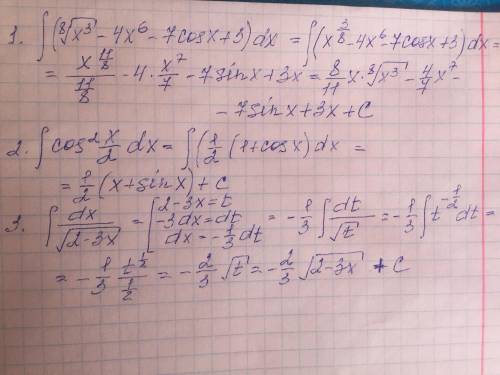 1. ∫(⁸√x³ - 4x⁶ - 7cosx + 3)dx = ∫(x^(3/8) - 4x⁶ - 7cosx + 3)dx =
= x^(11/8)/(11/8) - 4·x⁷/7 - 7sinx + 3x = 8/11 x·⁸√x³ - 4/7 x⁷ -
- 7sinx + 3x + C
2. ∫cos² x/2 dx = ∫(1/2 (1+cosx)dx =
= 1/2 (x+sinx) + C
3. ∫dx/√(2-3x) = [2-3x=t
-3dx=dt
dx=-1/3 dt
= -1/3 ∫dt/√t = -1/3 ∫t^(-1/2) dt =
= -1/3 t^(1/2)/(1/2) = -2/3 √t = -2/3 √(2-3x) + C